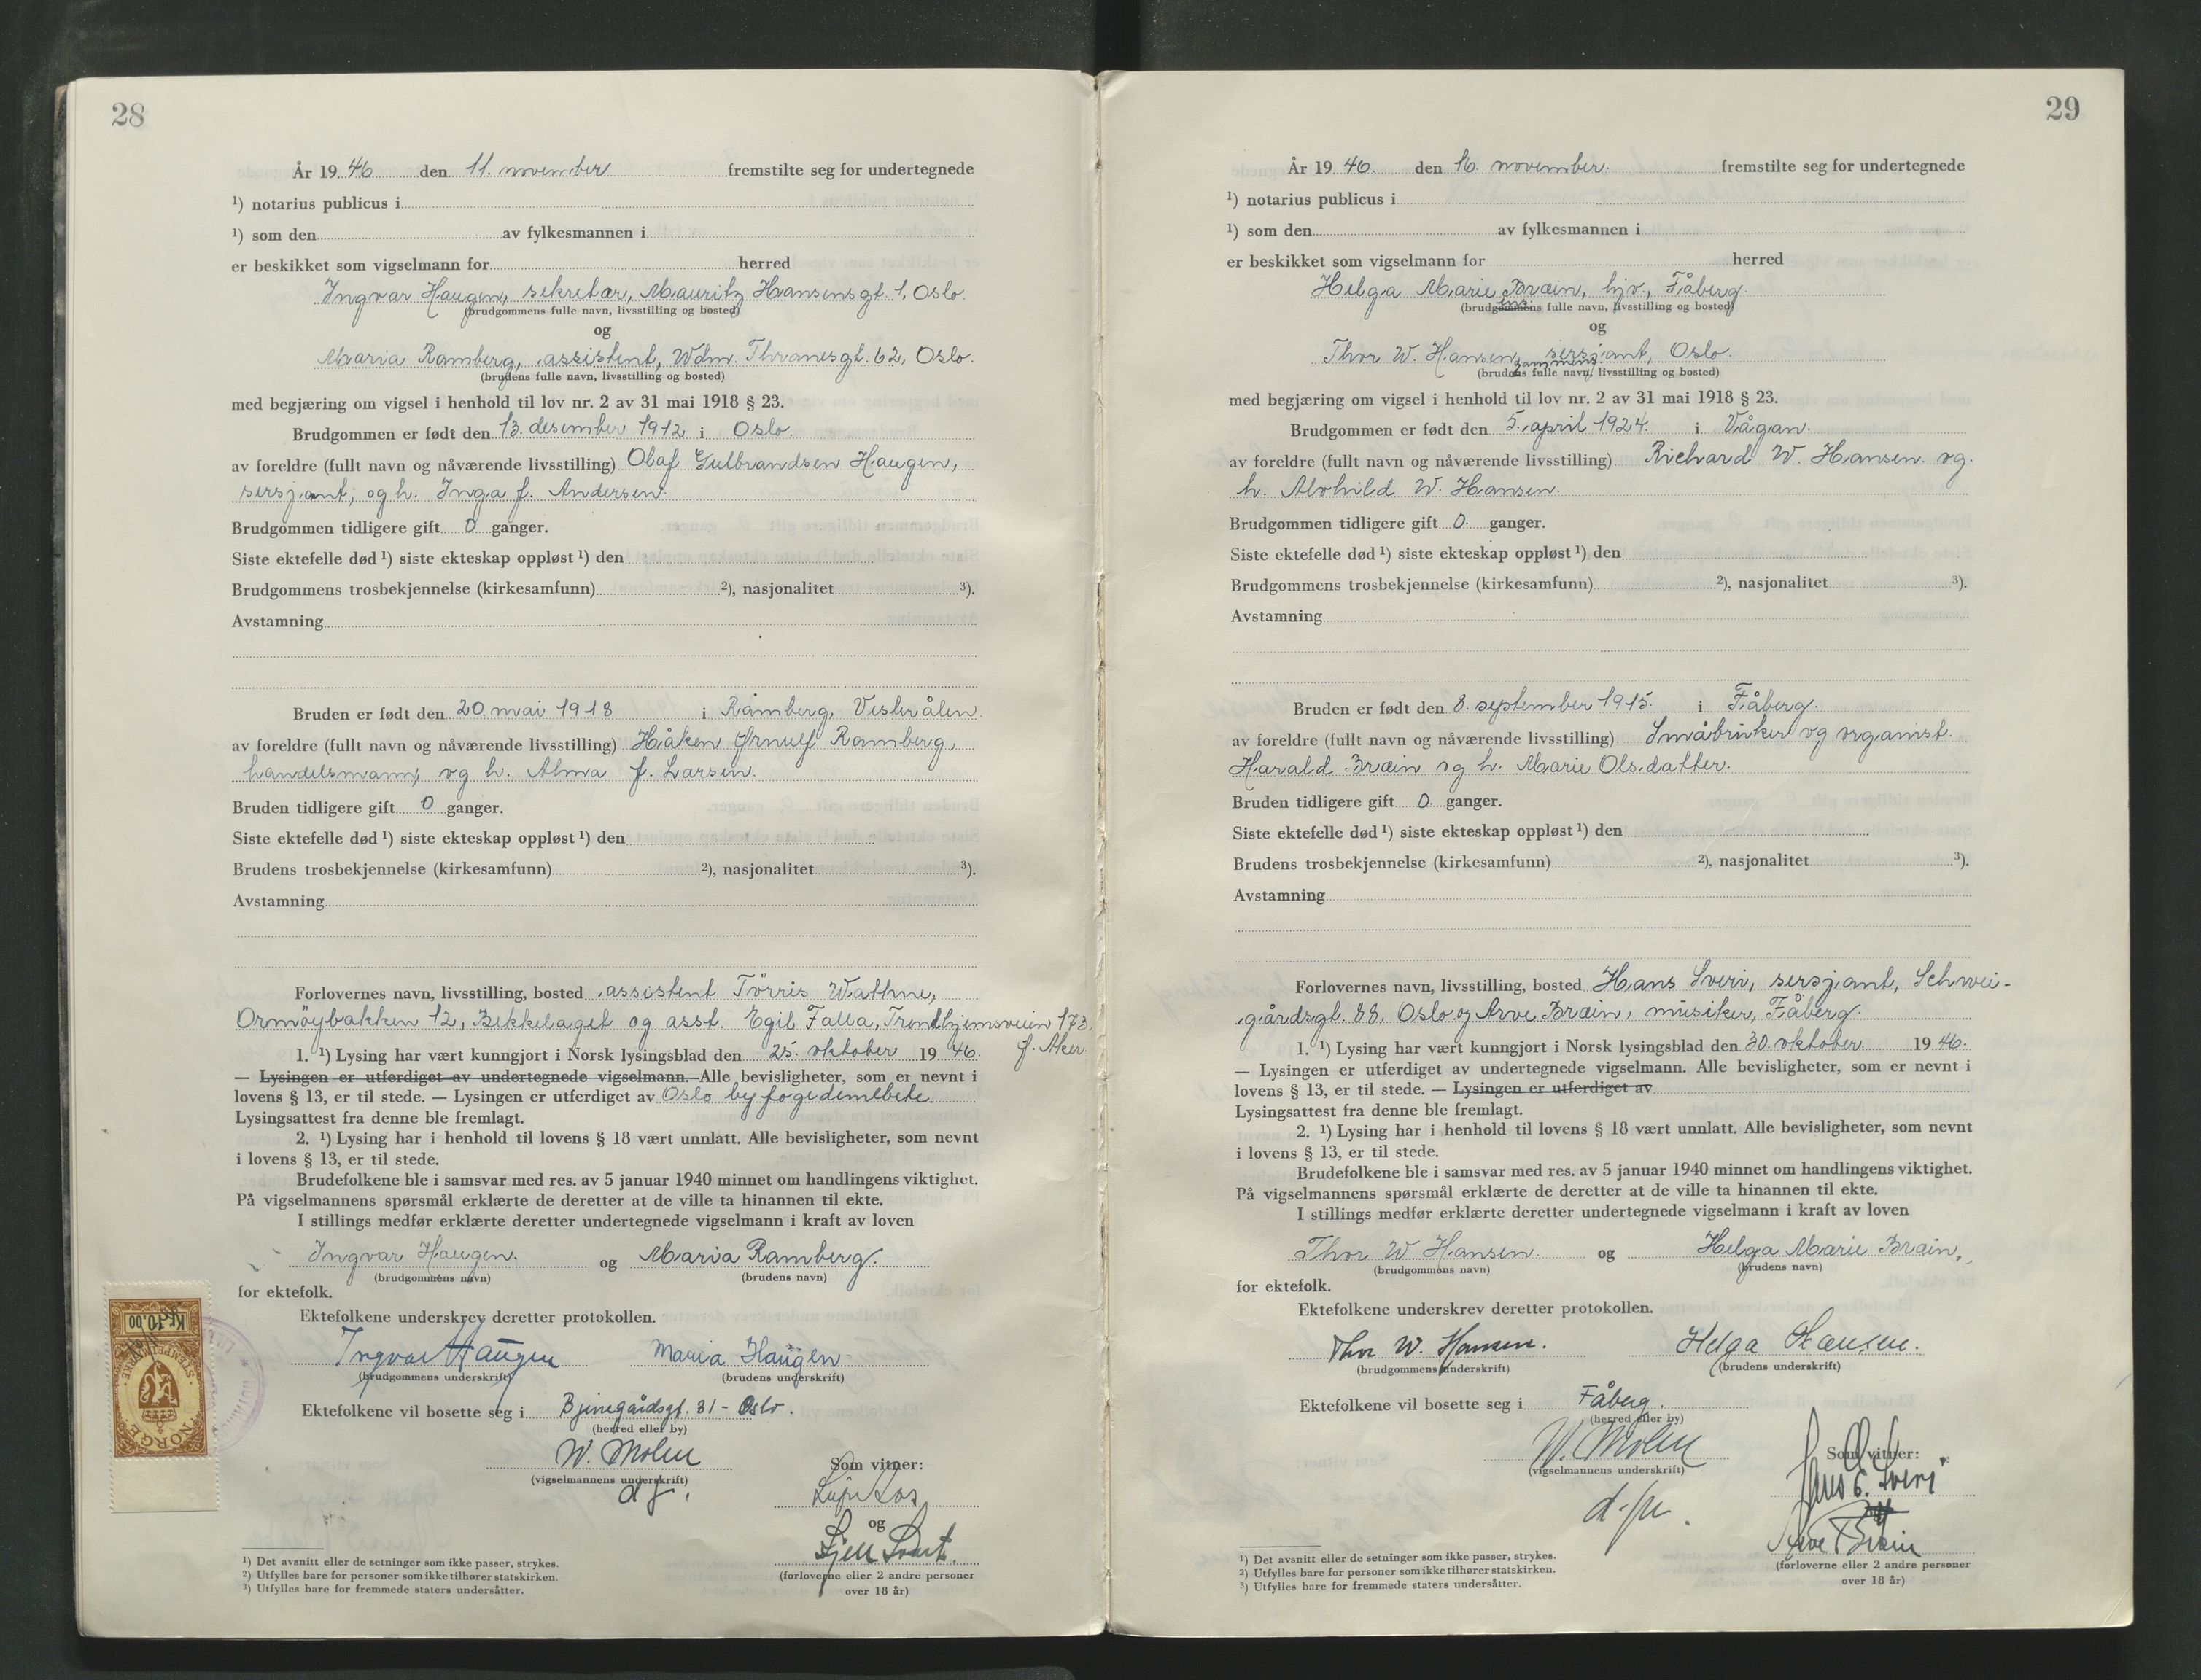 28
År 19 46 den 11. november fremstilte seg for undertegnede
¹) notarius publicus i
¹) som den av fylkesmannen i
er beskikket som vigselmann for herred
Ingvar Haugen, sekretær, Mauritz Hansensgt. 1, Oslo.
(brudgommens fulle navn, livsstilling og bosted)
og
Maria Ramberg, assistent, Wdm. Thranesgt. 62, Oslo.
(brudens fulle navn, livsstilling og bosted)
med begjæring om vigsel i henhold til lov nr. 2 av 31 mai 1918 § 23.
Brudgommen er født den 13. desember 1912 i Oslo.
av foreldre (fullt navn og nåværende livsstilling) Olaf Gulbrandsen Haugen,
sersjant, og h. Inga f. Andersen.
Brudgommen tidligere gift 0 ganger.
Siste ektefelle død ¹) siste ekteskap oppløst ¹) den
Brudgommens trosbekjennelse (kirkesamfunn) ²), nasjonalitet ³).
Avstamning
Bruden er født den 20. mai 1918 i Ramberg, Vesterålen.
av foreldre (fullt navn og nåværende livsstilling) Håken Ørnulf Ramberg,
handelsmann, og h. Alma f. Larsen.
Bruden tidligere gift 0 ganger.
Siste ektefelle død ¹) siste ekteskap oppløst ¹) den
Brudens trosbekjennelse (kirkesamfunn) ²), nasjonalitet ³).
Avstamning
Forlovernes navn, livsstilling, bosted assistent Törris Wathne,
Ormöybakken 12, Bekkelaget og asst. Egil Falla, Trondhjemsveien 173.
1. ¹) Lysing har vært kunngjort i Norsk lysingsblad den 25. oktober 19 46. Aker
— Lysingen er utferdiget av undertegnede vigselmann. Alle bevisligheter, som er nevnt i
lovens § 13, er til stede. — Lysingen er utferdiget av Oslo byfogdembete.
Lysingsattest fra denne ble fremlagt.
2. ¹) Lysing har i henhold til lovens § 18 vært unnlatt. Alle bevisligheter, som nevnt
i lovens § 13, er til stede.
Brudefolkene ble i samsvar med res. av 5 januar 1940 minnet om handlingens viktighet.
På vigselmannens spørsmål erklærte de deretter at de ville ta hinannen til ekte.
I stillings medfør erklærte deretter undertegnede vigselmann i kraft av loven
Ingvar Haugen. og Maria Ramberg.
(brudgommens navn) (brudens navn)
for ektefolk.
Ektefolkene underskrev deretter protokollen.
Ingvar Haugen Maria Haugen
(brudgommens underskrift) (brudens underskrift)
Ektefolkene vil bosette seg i Bjerregårdsgt. 31 - Oslo.
(herred eller by)
W. Molen
(vigselmannens underskrift)
Som vitner:
og
(forloverne eller 2 andre personer
over 18 år)
Kr. 10.00
STEMPELMERKE
NORGE
¹) Det avsnitt eller de setninger som ikke passer, strykes.
²) Utfylles bare for personer som ikke tilhører statskirken.
³) Utfylles bare for fremmede staters undersåtter.
29
År 19 46. den 16. november. fremstilte seg for undertegnede
¹) notarius publicus i
¹) som den av fylkesmannen i
er beskikket som vigselmann for herred
Helga Marie Bræin, hjv., Fåberg.
(brudgommens fulle navn, livsstilling og bosted)
og
Thor W. Hansen, sersjant, Oslo.
(brudens fulle navn, livsstilling og bosted)
med begjæring om vigsel i henhold til lov nr. 2 av 31 mai 1918 § 23.
Brudgommen er født den 5. april 1924. i Vågan.
av foreldre (fullt navn og nåværende livsstilling) Richard W. Hansen og
h. Alvhild W. Hansen.
Brudgommen tidligere gift 0. ganger.
Siste ektefelle død ¹) siste ekteskap oppløst ¹) den
Brudgommens trosbekjennelse (kirkesamfunn) ²), nasjonalitet ³).
Avstamning
Bruden er født den 8. september 1915. i Fåberg.
av foreldre (fullt navn og nåværende livsstilling) Småbruker og organist
Harald Bræin og h. Marie Olsdatter.
Bruden tidligere gift 0. ganger.
Siste ektefelle død ¹) siste ekteskap oppløst ¹) den
Brudens trosbekjennelse (kirkesamfunn) ²), nasjonalitet ³).
Avstamning
Forlovernes navn, livsstilling, bosted Hans Sveri, sersjant, Schwei-
gårdsgt. 88, Oslo og Arve Bræin, musiker, Fåberg.
1. ¹) Lysing har vært kunngjort i Norsk lysingsblad den 30. oktober. 19 46.
— Lysingen er utferdiget av undertegnede vigselmann. Alle bevisligheter, som er nevnt i
lovens § 13, er til stede. — Lysingen er utferdiget av
Lysingsattest fra denne ble fremlagt.
2. ¹) Lysing har i henhold til lovens § 18 vært unnlatt. Alle bevisligheter, som nevnt
i lovens § 13, er til stede.
Brudefolkene ble i samsvar med res. av 5 januar 1940 minnet om handlingens viktighet.
På vigselmannens spørsmål erklærte de deretter at de ville ta hinannen til ekte.
I stillings medfør erklærte deretter undertegnede vigselmann i kraft av loven
Thor W Hansen. og Helga Marie Bræin,
(brudgommens navn) (brudens navn)
for ektefolk.
Ektefolkene underskrev deretter protokollen.
Thor W. Hansen. Helga Hansen.
(brudgommens underskrift) (brudens underskrift)
Ektefolkene vil bosette seg i Fåberg.
(herred eller by)
W. Molen
(vigselmannens underskrift)
Som vitner:
Hans E. Sveri
Arve Bræin
(forloverne eller 2 andre personer
over 18 år)
¹) Det avsnitt eller de setninger som ikke passer, strykes.
²) Utfylles bare for personer som ikke tilhører statskirken.
³) Utfylles bare for fremmede staters undersåtter.